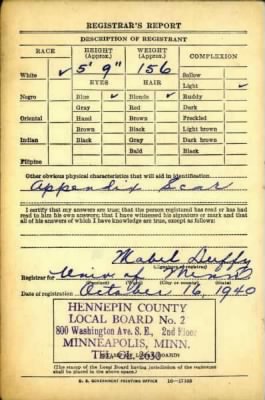 REGISTRAR'S REPORT
DESCRIPTION OF REGISTRANT
RACE HEIGHT (Approx.) WEIGHT (Approx.) COMPLEXION
White ✓ 5' 9" 156 Sallow
EYES HAIR Light ✓
Negro Blue ✓ Blonde ✓ Ruddy
Gray Red Dark
Oriental Hazel Brown Freckled
Brown Black Light brown
Indian Black Gray Dark brown
Bald Black
Filipino
Other obvious physical characteristics that will aid in identification
Appendix Scar
I certify that my answers are true; that the person registered has read or has had
read to him his own answers; that I have witnessed his signature or mark and that
all of his answers of which I have knowledge are true, except as follows:
Mabel Duffy
(Signature of registrar)
Registrar for Univ of Minn
Date of registration October 16, 1940
HENNEPIN COUNTY
LOCAL BOARD No. 2
800 Washington Ave. S. E., 2nd Floor
MINNEAPOLIS, MINN.
TEL. GL. 2630
(The stamp of the Local Board having jurisdiction of the registrant
shall be placed in the above space.)
U. S. GOVERNMENT PRINTING OFFICE 16—17105